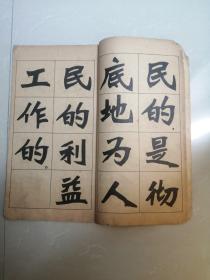 民的是彻
底地为人
民的利益
工作的。